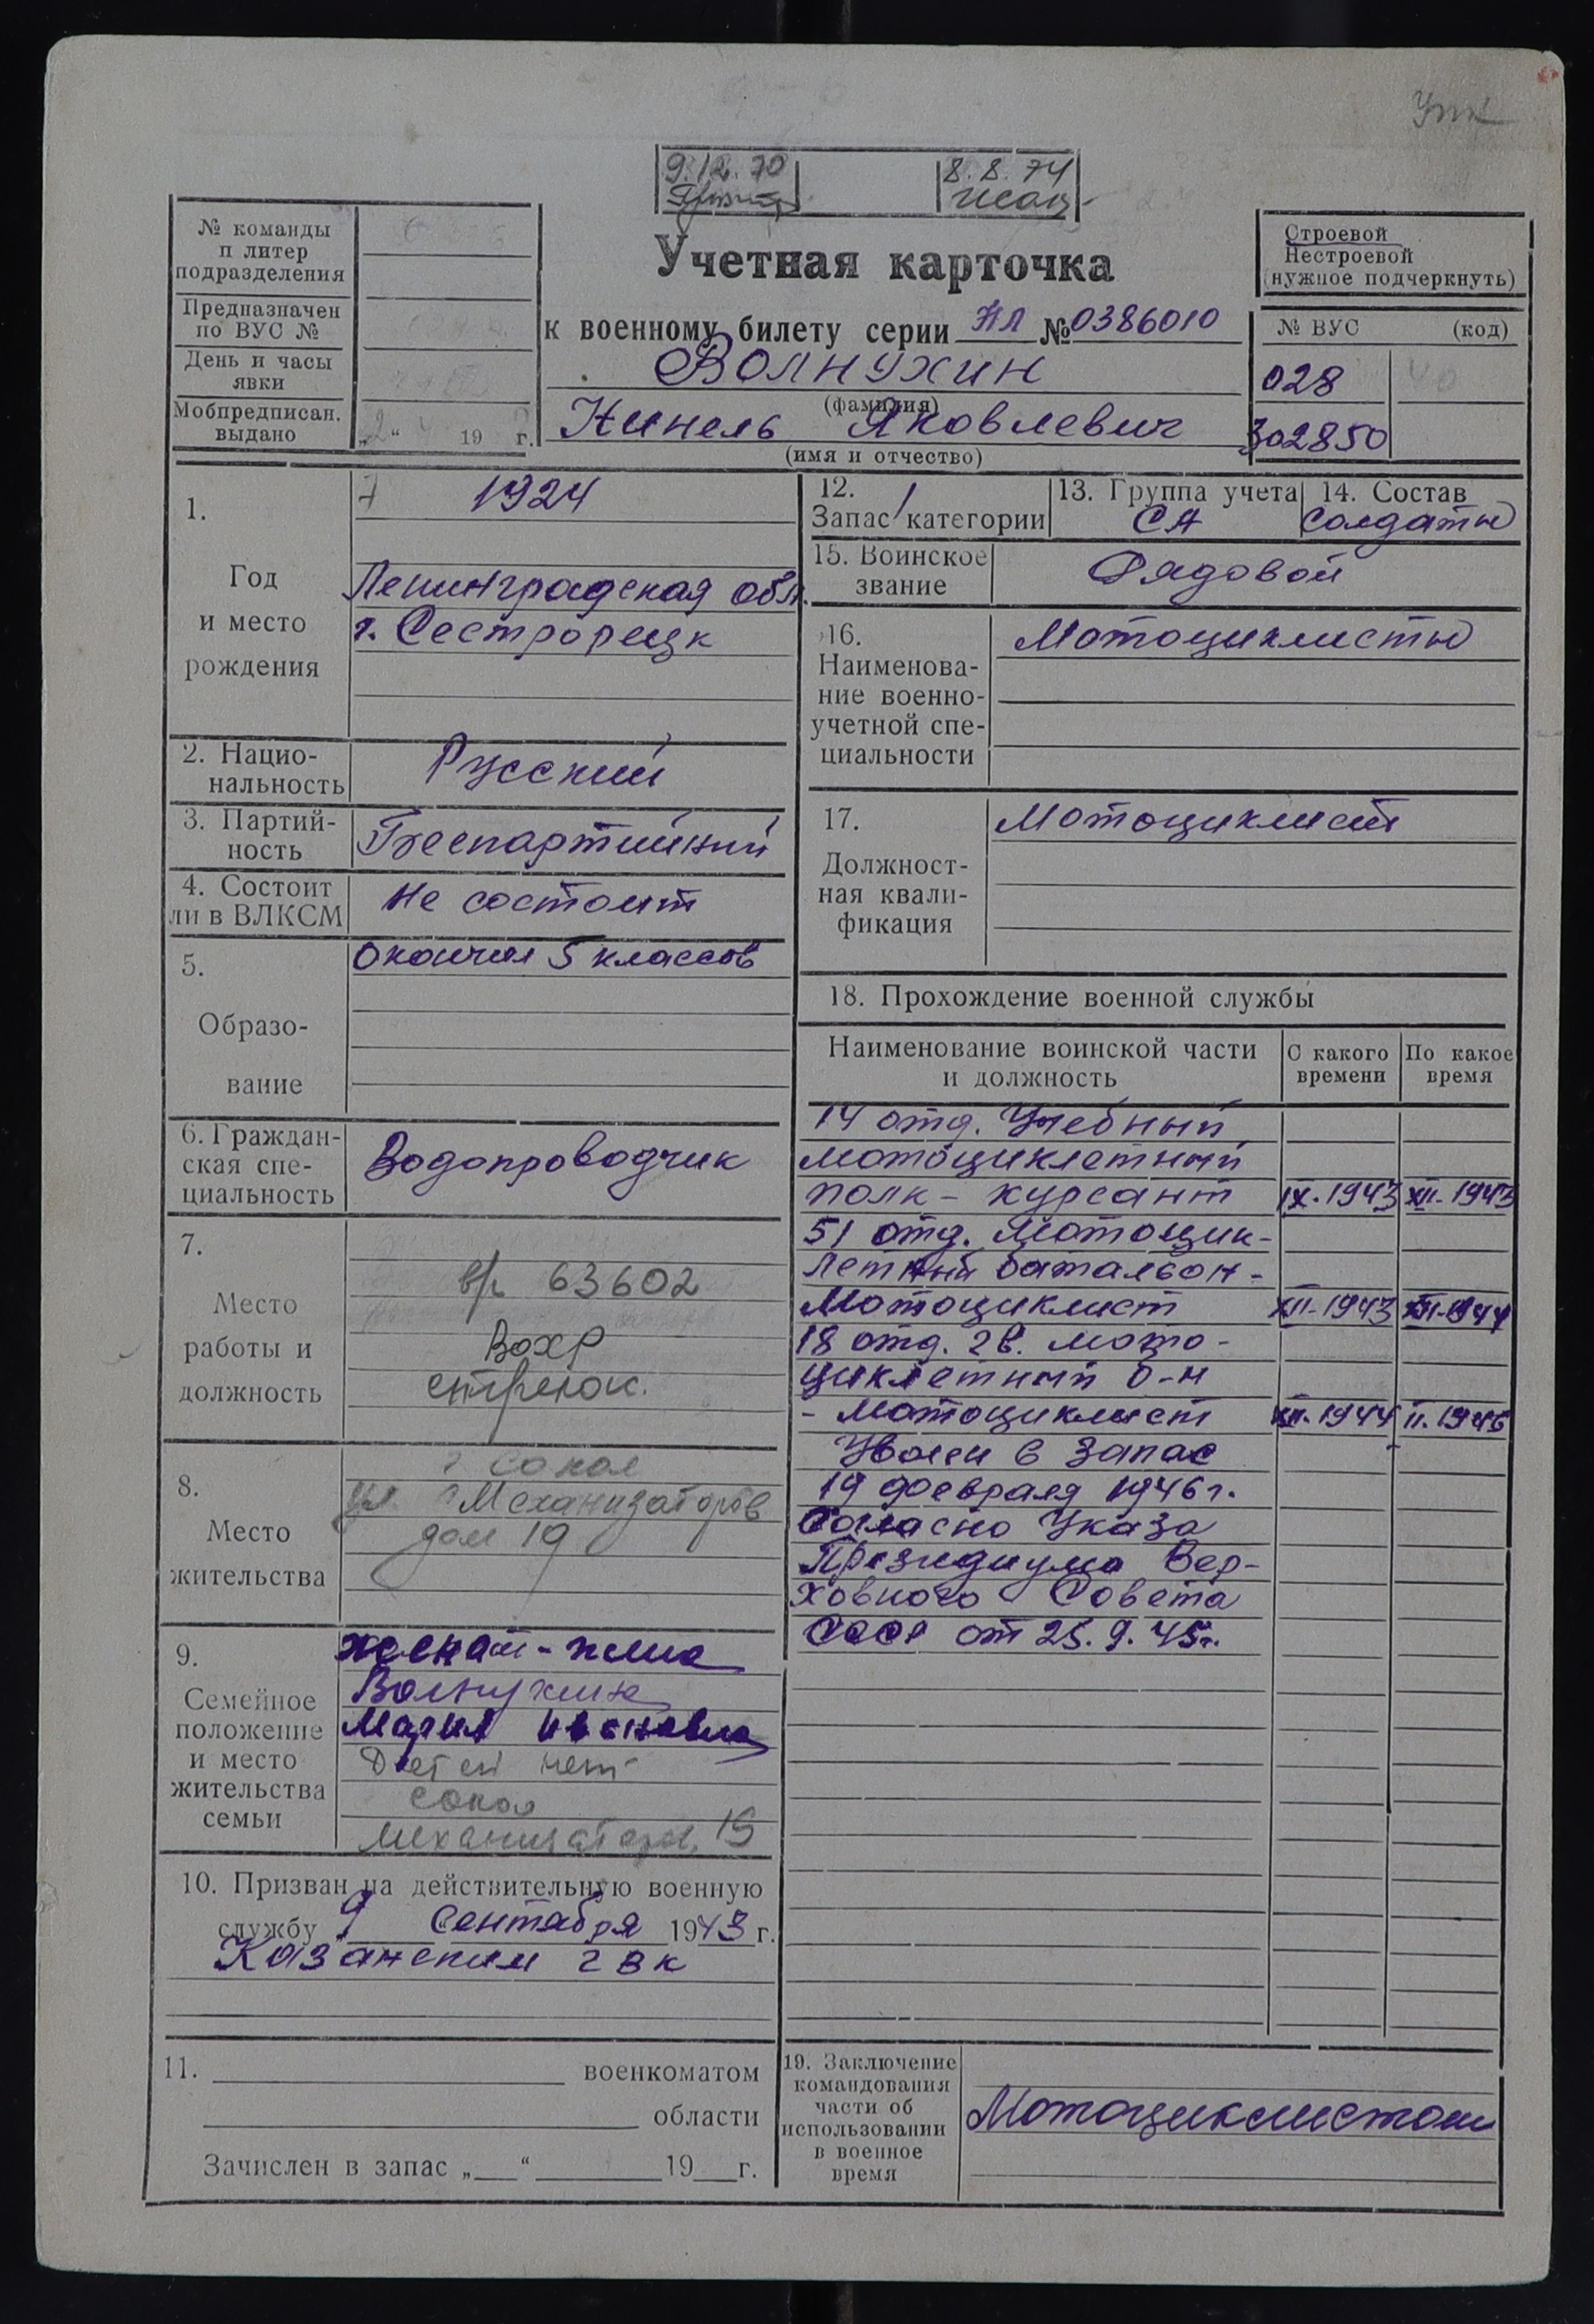 Упк
9.12.70
8.8.74
№ команды
п литер
подразделения
Предназначен
по ВУС №
День и часы
явки
Мобпредписан.
выдано
„2“ 19 г.
Учетная карточка
к военному билету серии НЛ № 0386010
Волнухин
(фамилия)
Нинель Яковлевич
(имя и отчество)
Строевой
Нестроевой
(нужное подчеркнуть)
№ ВУС (код)
028 40
302850
1.
Год
и место
рождения
7 1924
Ленинградская обл.
г. Сестрорецк
2. Нацио-
нальность
Русский
3. Партий-
ность
Беспартийный
4. Состоит
ли в ВЛКСМ
Не состоит
5.
Образо-
вание
Окончил 5 классов
6. Граждан-
ская спе-
циальность
Водопроводчик
7.
Место
работы и
должность
в/ч 63602
Вохр
стрелок.
8.
Место
жительства
г Сокол
ул. Механизаторов
дом 19
9.
Семейное
положение
и место
жительства
семьи
женат - жена
Волнухина
Мария Ивановна
Детей нет
Сокол
Механизаторов, 19
10. Призван на действительную военную
службу 9 Сентября 1943 г.
Казанским ГВК
11. военкоматом
области
Зачислен в запас „ “ 19 г.
12.
Запас 1 категории
13. Группа учета
СА
14. Состав
Солдаты
15. Воинское
звание
Рядовой
16.
Наименова-
ние военно-
учетной спе-
циальности
Мотоциклисты
17.
Должност-
ная квали-
фикация
Мотоциклист
18. Прохождение военной службы
Наименование воинской части
и должность
С какого
времени
По какое
время
14 отд. Учебный
мотоциклетный
полк - курсант IX.1943 XII-1943
51 отд. Мотоцик-
летный батальон -
Мотоциклист XII-1943 XII-1944
18 отд. гв. мото-
циклетный б-н
- Мотоциклист XII.1944 II.1946
Уволен в запас
19 февраля 1946 г.
Согласно Указа
Президиума Вер-
ховного Совета
СССР от 25.9.45г.
19. Заключение
командования
части об
использовании
в военное
время
Мотоциклистом